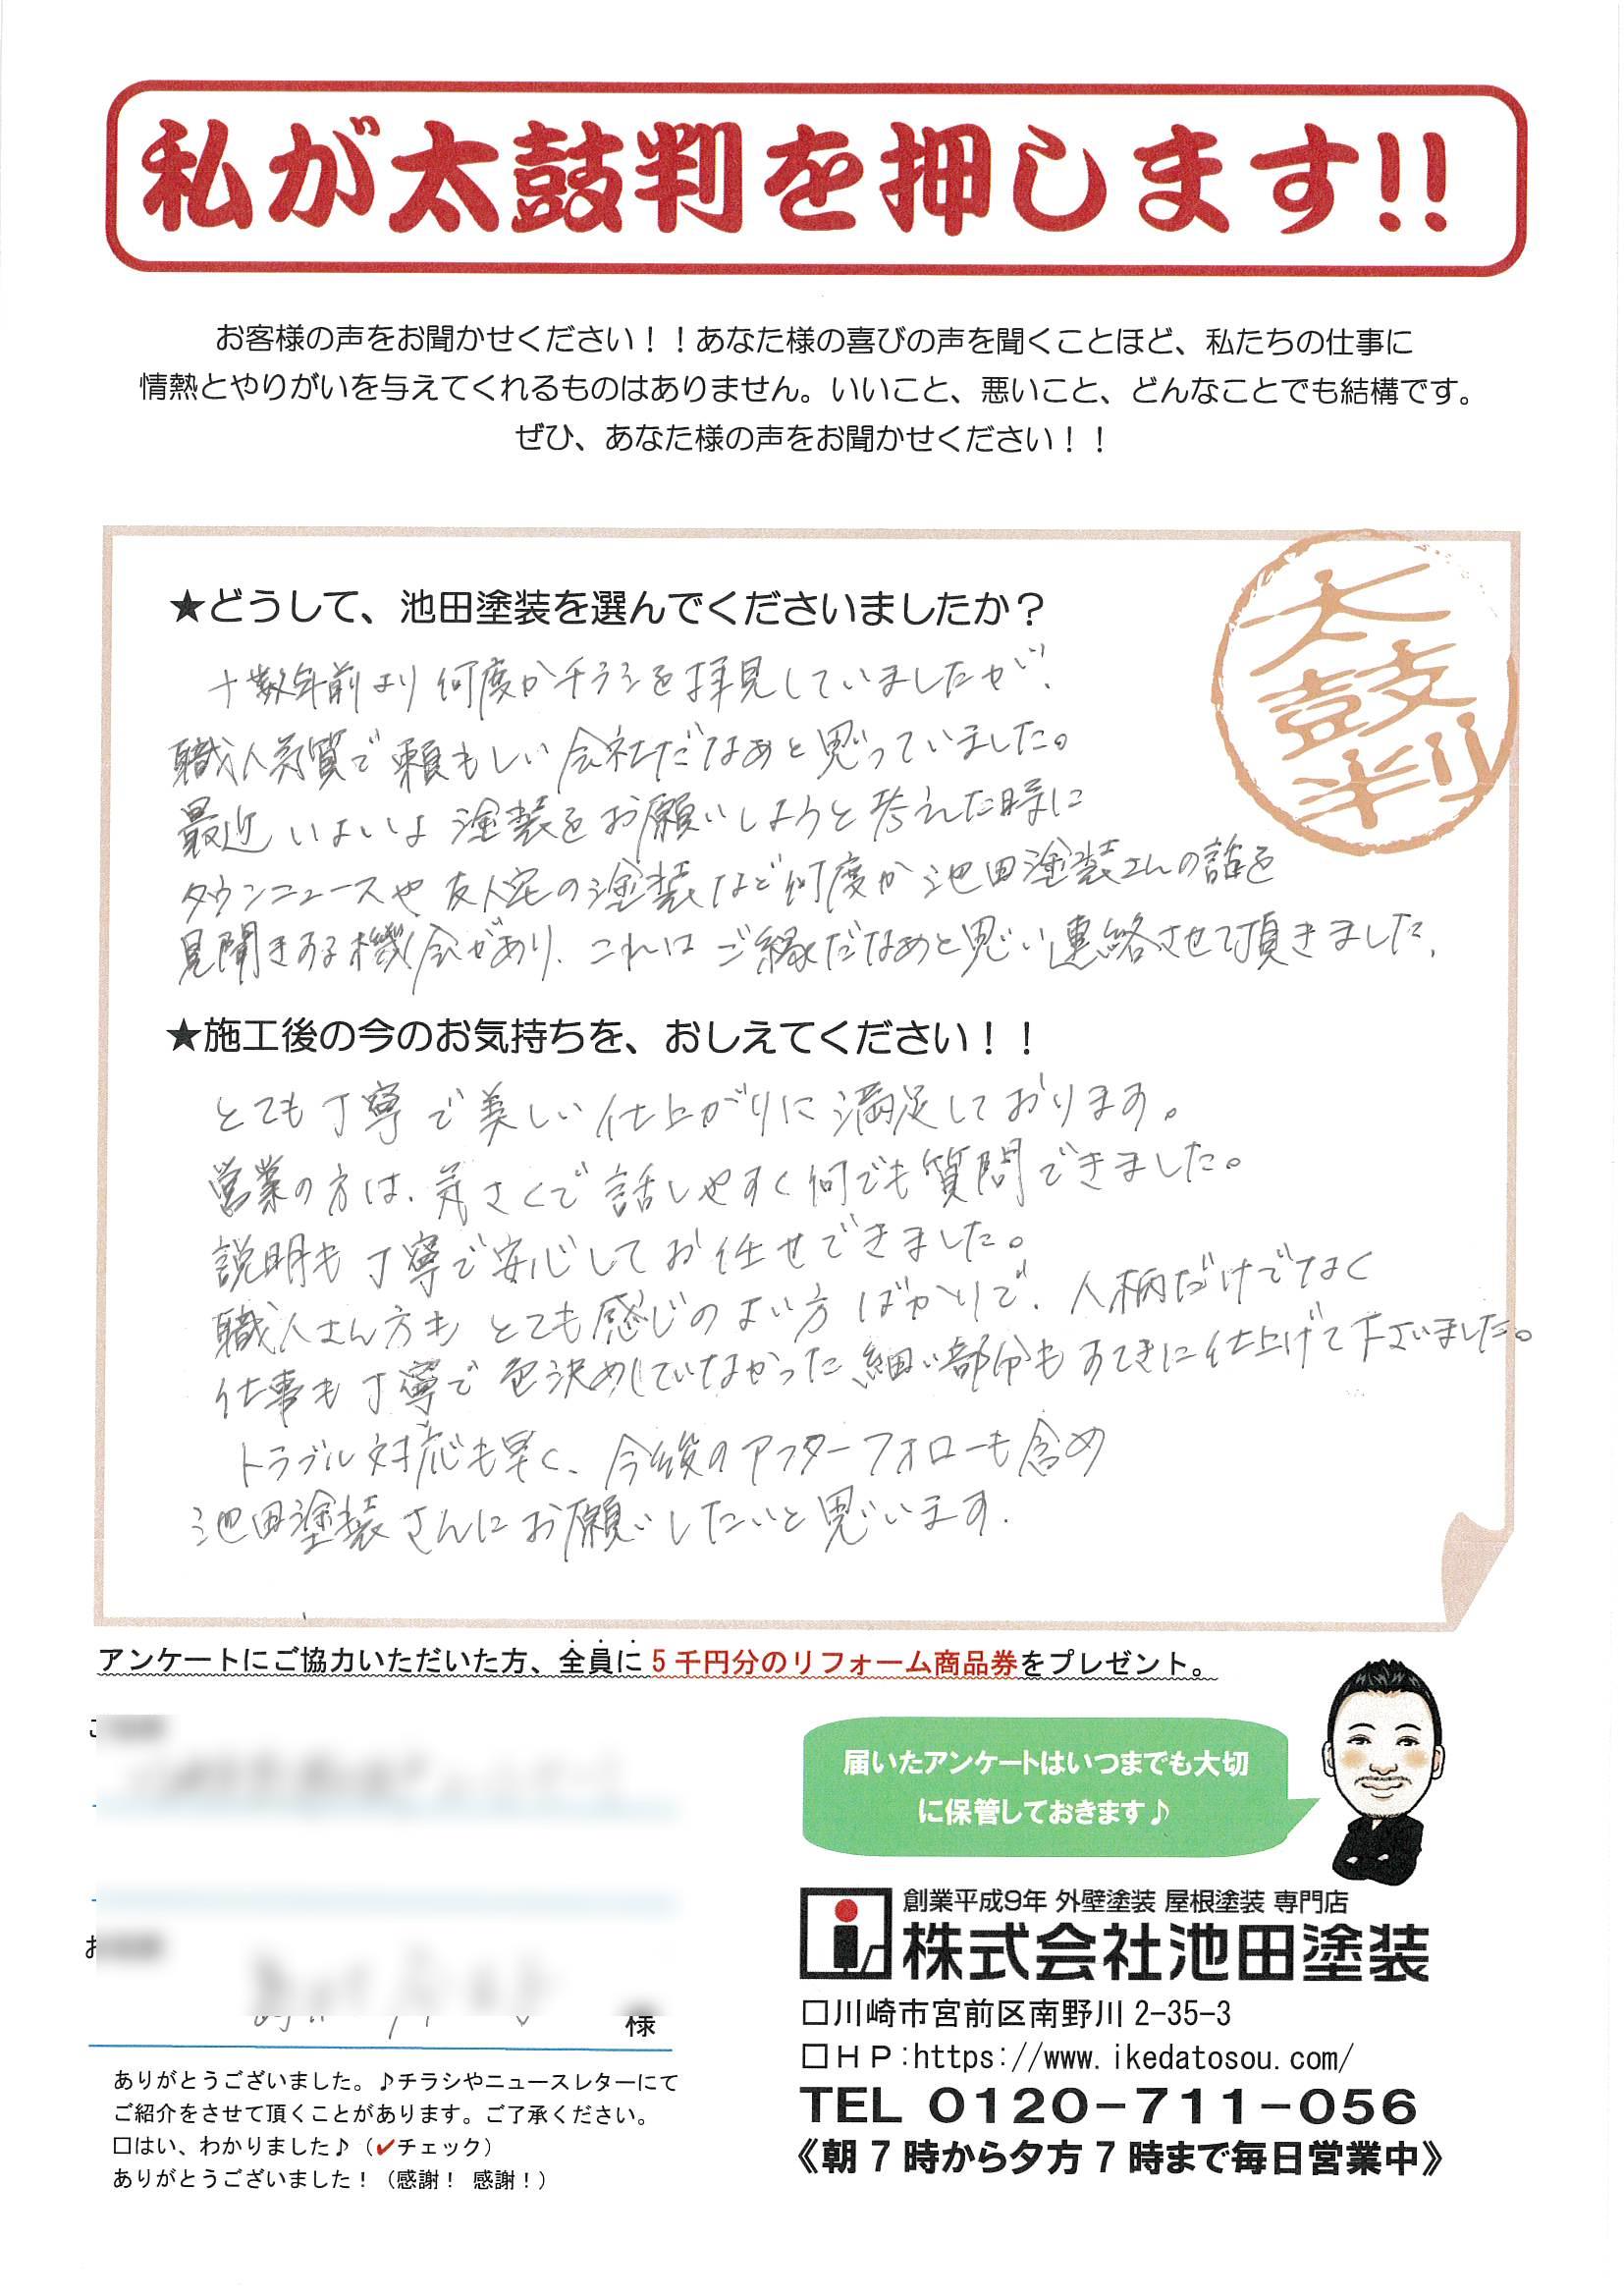 私が太鼓判を押します!!
お客様の声をお聞かせください！！あなた様の喜びの声を聞くことほど、私たちの仕事に
情熱とやりがいを与えてくれるものはありません。いいこと、悪いこと、どんなことでも結構です。
ぜひ、あなた様の声をお聞かせください！！
太鼓判
★どうして、池田塗装を選んでくださいましたか？
十数年前より何度かチラシを拝見していましたが、
職人気質で頼もしい会社だなあと思っていました。
最近いよいよ塗装をお願いしようと考えた時に
タウンニュースや友人宅の塗装など何度か池田塗装さんの話を
見聞きする機会があり、これはご縁だなあと思い連絡させて頂きました。
★施工後の今のお気持ちを、おしえてください！！
とても丁寧で美しい仕上がりに満足しております。
営業の方は、気さくで話しやすく何でも質問できました。
説明も丁寧で安心してお任せできました。
職人さん方もとても感じのよい方ばかりで、人柄だけでなく
仕事も丁寧で色決めしていなかった細い部分もすてきに仕上げて下さいました。
トラブル対応も早く、今後のアフターフォローも含め
池田塗装さんにお願いしたいと思います.
アンケートにご協力いただいた方、全員に5千円分のリフォーム商品券をプレゼント。
届いたアンケートはいつまでも大切
に保管しておきます♪
創業平成9年 外壁塗装 屋根塗装 専門店
株式会社池田塗装
様
□川崎市宮前区南野川2-35-3
□ＨＰ:https://www.ikedatosou.com/
TEL 0120-711-056
《朝7時から夕方7時まで毎日営業中》
ありがとうございました。♪チラシやニュースレターにて
ご紹介をさせて頂くことがあります。ご了承ください。
□はい、わかりました♪（✔チェック）
ありがとうございました！（感謝！ 感謝！）